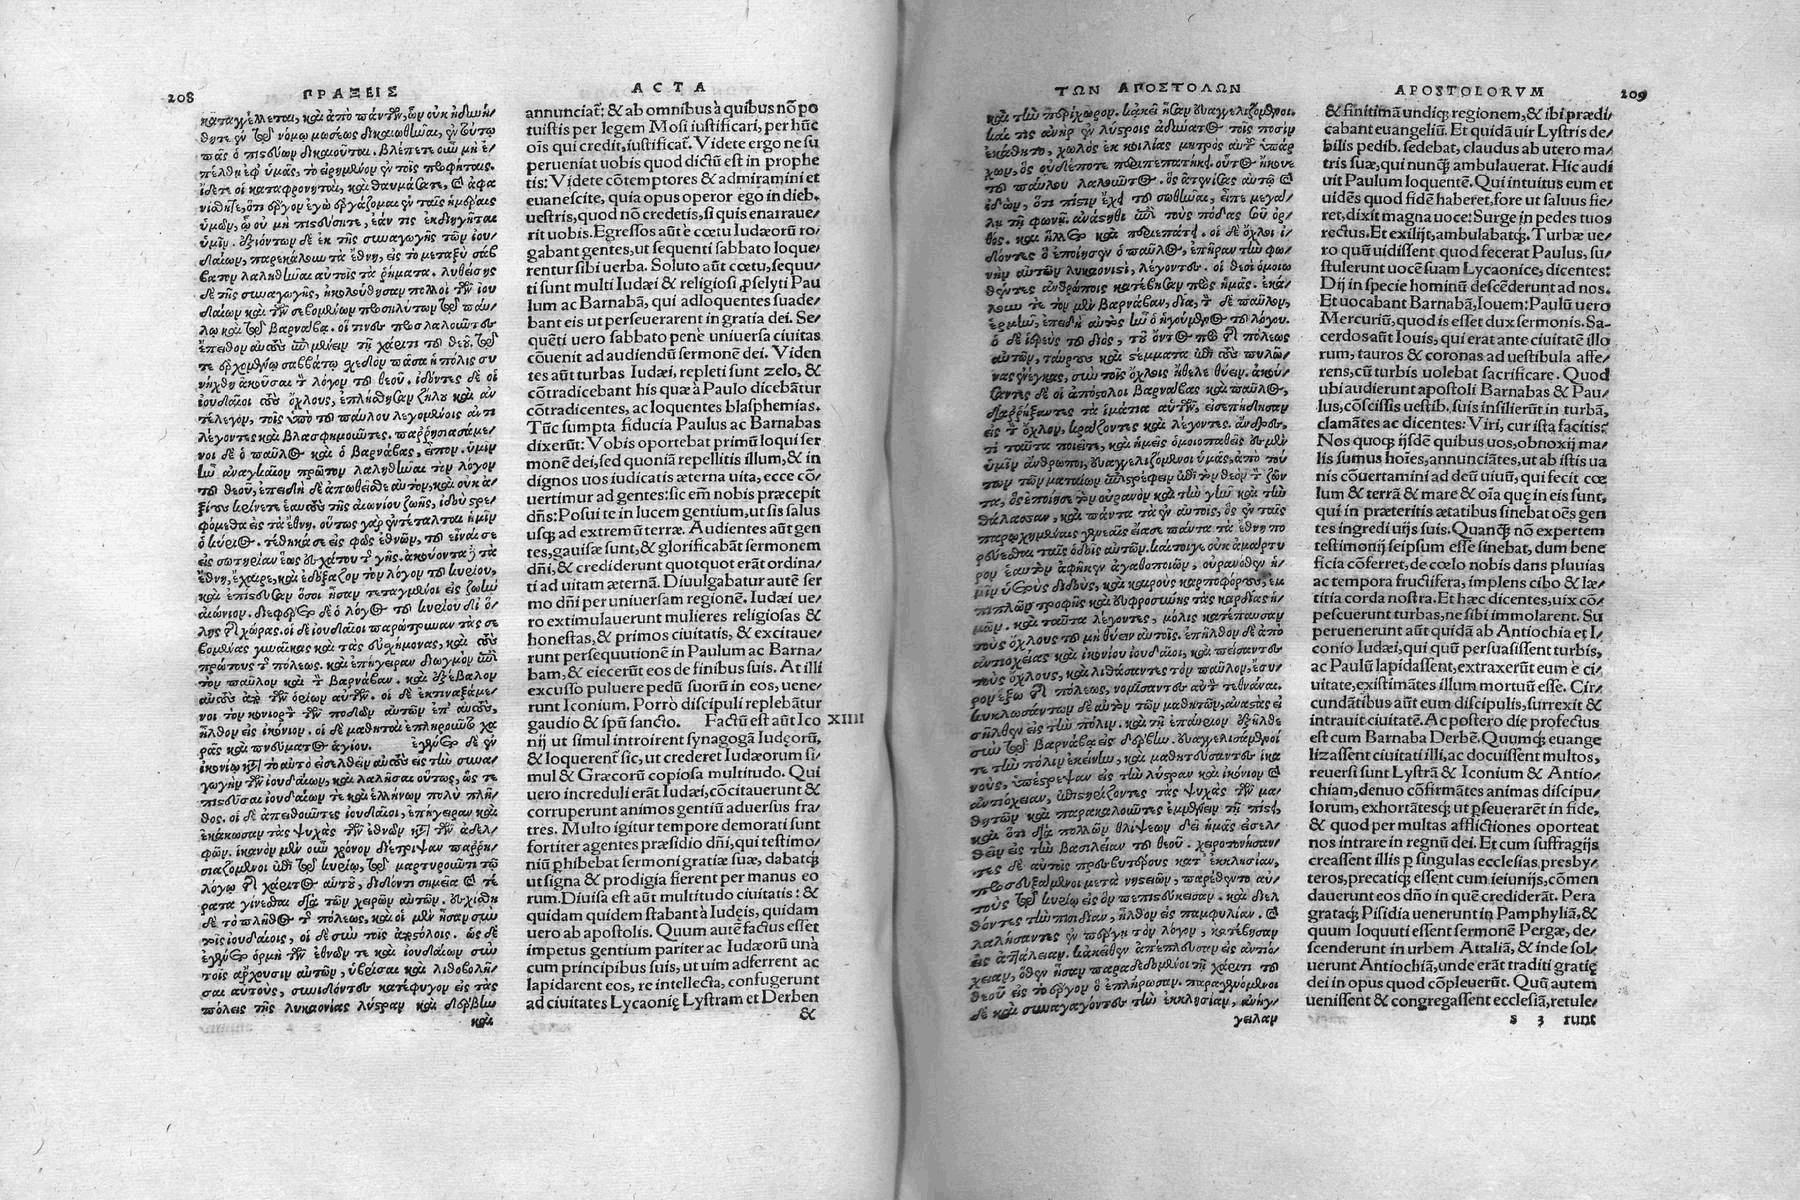 208
ΠΡΑΞΕΙΣ
καταγγέλλεται, καὶ ἀπὸ πάντων, ὧν οὐκ ἠδυνή/
θητε ἐν τῷ νόμῳ μωσέως δικαιωθῆναι, ἐν τούτῳ
πᾶς ὁ πιστεύων δικαιοῦται. βλέπετε οὖν μὴ ἐ/
πέλθῃ ἐφ ὑμᾶς, τὸ εἰρημένον ἐν τοῖς προφήταις.
ἴδετε οἱ καταφρονηταὶ, καὶ θαυμάσατε, καὶ ἀφα
νίσθητε, ὅτι ἔργον ἐγὼ ἐργάζομαι ἐν ταῖς ἡμέραις
ὑμῶν, ᾧ οὐ μὴ πιστεύσητε, ἐάν τις ἐκδιηγῆται
ὑμῖν. ἐξιόντων δὲ ἐκ τῆς συναγωγῆς τῶν ἰου/
δαίων, παρεκάλουν τὰ ἔθνη, εἰς τὸ μεταξὺ σάβ
βατον λαληθῆναι αὐτοῖς τὰ ῥήματα. λυθείσης
δὲ τῆς συναγωγῆς, ἠκολούθησαν πολλοὶ τῶν ἰου
δαίων καὶ τῶν σεβομένων προσηλύτων τῷ παύ/
λῳ καὶ τῷ βαρνάβᾳ. οἵτινες προσλαλοῦντες
ἔπειθον αὐτοὺς ἐπιμένειν τῇ χάριτι τοῦ θεοῦ. τῷ
τε ἐρχομένῳ σαββάτῳ σχεδὸν πᾶσα ἡ πόλις συ
νήχθη ἀκοῦσαι τὸν λόγον τοῦ θεοῦ. ἰδόντες δὲ οἱ
ἰουδαῖοι τοὺς ὄχλους, ἐπλήσθησαν ζήλου καὶ ἀν
τέλεγον, τοῖς ὑπὸ τοῦ παύλου λεγομένοις ἀντι
λέγοντες καὶ βλασφημοῦντες. παρρησιασάμε/
νοι δὲ ὁ παῦλος καὶ ὁ βαρνάβας, εἶπον. ὑμῖν
ἦν ἀναγκαῖον πρῶτον λαληθῆναι τὸν λόγον
τοῦ θεοῦ, ἐπειδὴ δὲ ἀπωθεῖσθε αὐτὸν, καὶ οὐκ ἀ/
ξίους κρίνετε ἑαυτοὺς τῆς αἰωνίου ζωῆς, ἰδοὺ στρε/
φόμεθα εἰς τὰ ἔθνη. οὕτως γὰρ ἐντέταλται ἡμῖν
ὁ κύριος. τέθεικά σε εἰς φῶς ἐθνῶν, τοῦ εἶναί σε
εἰς σωτηρίαν ἕως ἐσχάτου τῆς γῆς. ἀκούοντα δὲ τὰ
ἔθνη, ἔχαιρε, καὶ ἐδόξαζον τὸν λόγον τοῦ κυρίου,
καὶ ἐπίστευσαν ὅσοι ἦσαν τεταγμένοι εἰς ζωὴν
αἰώνιον. διεφέρετο δὲ ὁ λόγος τοῦ κυρίου δι ὅ/
λης τῆς χώρας. οἱ δὲ ἰουδαῖοι παρώτρυναν τὰς σε
βομένας γυναῖκας καὶ τὰς εὐσχήμονας, καὶ τοὺς
πρώτους τῆς πόλεως. καὶ ἐπήγειραν διωγμὸν ἐπὶ
τὸν παῦλον καὶ τὸν βαρνάβαν. καὶ ἐξέβαλον
αὐτοὺς ἀπὸ τῶν ὁρίων αὐτῶν. οἱ δὲ ἐκτιναξάμε/
νοι τὸν κονιορτὸν τῶν ποδῶν αὐτῶν ἐπ αὐτοὺς,
ἦλθον εἰς ἰκόνιον. οἱ δὲ μαθηταὶ ἐπληροῦντο χα
ρᾶς καὶ πνεύματος ἁγίου. ἐγένετο δὲ ἐν
ἰκονίῳ κατὰ τὸ αὐτὸ εἰσελθεῖν αὐτοὺς εἰς τὴν συνα/
γωγὴν τῶν ἰουδαίων, καὶ λαλῆσαι οὕτως, ὥς τε
πιστεῦσαι ἰουδαίων τε καὶ ἑλλήνων πολὺ πλῆ/
θος. οἱ δὲ ἀπειθοῦντες ἰουδαῖοι, ἐπήγειραν καὶ
ἐκάκωσαν τὰς ψυχὰς τῶν ἐθνῶν κατὰ τῶν ἀδελ/
φῶν. ἱκανὸν μὲν οὖν χρόνον διέτριψαν παρρη/
σιαζόμενοι ἐπὶ τῷ κυρίῳ, τῷ μαρτυροῦντι τῷ
λόγῳ τῆς χάριτος αὐτοῦ, διδόντι σημεῖα καὶ τέ
ρατα γίνεσθαι διὰ τῶν χειρῶν αὐτῶν. ἐσχίσθη
δὲ τὸ πλῆθος τῆς πόλεως, καὶ οἱ μὲν ἦσαν σὺν
τοῖς ἰουδαίοις, οἱ δὲ σὺν τοῖς ἀποστόλοις. ὡς δὲ
ἐγένετο ὁρμὴ τῶν ἐθνῶν τε καὶ ἰουδαίων σὺν
τοῖς ἄρχουσιν αὐτῶν, ὑβρίσαι καὶ λιθοβολῆ/
σαι αὐτοὺς, συνιδόντες κατέφυγον εἰς τὰς
πόλεις τῆς λυκαονίας λύστραν καὶ δέρβην
καὶ
ACTA
annunciat᷑: & ab omnibus à quibus nõ po
tuistis per legem Mosi iustificari, per hũc
oĩs qui credit, iustificat᷑. Videte ergo ne su
perueniat uobis quod dictũ est in prophe
tis: Videte cõtemptores & admiramini et
euanescite, quia opus operor ego in dieb.
uestris, quod nõ credetis, si quis enarraue/
rit uobis. Egressos aũt è cœtu Iudæorũ ro/
gabant gentes, ut sequenti sabbato loque/
rentur sibi uerba. Soluto aũt cœtu, sequu/
ti sunt multi Iudæi & religiosi p̱selyti Pau
lum ac Barnabã, qui adloquentes suade/
bant eis ut perseuerarent in gratia dei. Se/
quẽti uero sabbato penè uniuersa ciuitas
cõuenit ad audiendũ sermonẽ dei. Viden
tes aũt turbas Iudæi, repleti sunt zelo, &
cõtradicebant his quæ à Paulo dicebãtur
cõtradicentes, ac loquentes blasphemias.
Tũc sumpta fiducia Paulus ac Barnabas
dixerũt: Vobis oportebat primũ loqui ser
monẽ dei, sed quoniã repellitis illum, & in
dignos uos iudicatis æterna uita, ecce cõ/
uertimur ad gentes: sic em̃ nobis præcepit
dñs: Posui te in lucem gentium, ut sis salus
usq; ad extremũ terræ. Audientes aũt gen
tes, gauisæ sunt, & glorificabãt sermonem
dñi, & crediderunt quotquot erãt ordina/
ti ad uitam æternã. Diuulgabatur autẽ ser
mo dñi per uniuersam regionẽ. Iudæi ue/
ro extimulauerunt mulieres religiosas &
honestas, & primos ciuitatis, & excitaue/
runt persequutionẽ in Paulum ac Barna/
bam, & eiecerũt eos de finibus suis. At illi
excusso puluere pedũ suorũ in eos, uene/
runt Iconium. Porrò discipuli replebãtur
gaudio & spũ sancto. Factũ est aũt Ico XIIII
nij ut simul introirent synagogã Iudęorũ,
& loquerent᷑ sic, ut crederet Iudæorum si/
mul & Græcorũ copiosa multitudo. Qui
uero increduli erãt Iudæi, cõcitauerũt &
corruperunt animos gentiũ aduersus fra/
tres. Multo igitur tempore demorati sunt
fortiter agentes præsidio dñi, qui testimo/
niũ p̱hibebat sermoni gratiæ suæ, dabatq;
ut signa & prodigia fierent per manus eo
rum. Diuisa est aũt multitudo ciuitatis: &
quidam quidem stabant à Iudęis, quidam
uero ab apostolis. Quum autẽ factus esset
impetus gentium pariter ac Iudæorũ unà
cum principibus suis, ut uim adferrent ac
lapidarent eos, re intellecta, confugerunt
ad ciuitates Lycaonię Lystram et Derben
&
ΤΩΝ ΑΠΟΣΤΟΛΩΝ
καὶ τὴν περίχωρον. κἀκεῖ ἦσαν εὐαγγελιζόμενοι.
καί τις ἀνὴρ ἐν λύστροις ἀδύνατος τοῖς ποσὶν
ἐκάθητο, χωλὸς ἐκ κοιλίας μητρὸς αὐτοῦ ὑπάρ
χων, ὃς οὐδέποτε περιπεπατήκει. οὗτος ἤκουε
τοῦ παύλου λαλοῦντος. ὃς ἀτενίσας αὐτῷ καὶ
ἰδὼν, ὅτι πίστιν ἔχει τοῦ σωθῆναι, εἶπε μεγά/
λῃ τῇ φωνῇ. ἀνάστηθι ἐπὶ τοὺς πόδας σου ὀρ/
θός. καὶ ἥλλετο καὶ περιεπάτει. οἱ δὲ ὄχλοι ἰ/
δόντες ὃ ἐποίησεν ὁ παῦλος, ἐπῆραν τὴν φω/
νὴν αὐτῶν λυκαονιστὶ, λέγοντες. οἱ θεοὶ ὁμοιω
θέντες ἀνθρώποις κατέβησαν πρὸς ἡμᾶς. ἐκά/
λουν τε τὸν μὲν βαρνάβαν, δία, τὸν δὲ παῦλον,
ἑρμῆν, ἐπειδὴ αὐτὸς ἦν ὁ ἡγούμενος τοῦ λόγου.
ὁ δὲ ἱερεὺς τοῦ διὸς, τοῦ ὄντος πρὸ τῆς πόλεως
αὐτῶν, ταύρους καὶ στέμματα ἐπὶ τοὺς πυλῶ/
νας ἐνέγκας, σὺν τοῖς ὄχλοις ἤθελε θύειν. ἀκού/
σαντες δὲ οἱ ἀπόστολοι βαρνάβας καὶ παῦλος,
διαρρήξαντες τὰ ἱμάτια αὐτῶν, εἰσεπήδησαν
εἰς τὸν ὄχλον, κράζοντες καὶ λέγοντες. ἄνδρες,
τί ταῦτα ποιεῖτε, καὶ ἡμεῖς ὁμοιοπαθεῖς ἐσμὲν
ὑμῖν ἄνθρωποι, εὐαγγελιζόμενοι ὑμᾶς, ἀπὸ τού
των τῶν ματαίων ἐπιστρέφειν ἐπὶ τὸν θεὸν τὸν ζῶν
τα, ὃς ἐποίησε τὸν οὐρανὸν καὶ τὴν γῆν καὶ τὴν
θάλασσαν, καὶ πάντα τὰ ἐν αὐτοῖς, ὃς ἐν ταῖς
παρῳχημέναις γενεαῖς εἴασε πάντα τὰ ἔθνη πο
ρεύεσθαι ταῖς ὁδοῖς αὐτῶν. καίτοιγε οὐκ ἀμάρτυ
ρον ἑαυτὸν ἀφῆκεν ἀγαθοποιῶν, οὐρανόθεν ἡ/
μῖν ὑετοὺς διδοὺς, καὶ καιροὺς καρποφόρους, ἐμ
πιπλῶν τροφῆς καὶ εὐφροσύνης τὰς καρδίας ἡ/
μῶν. καὶ ταῦτα λέγοντες, μόλις κατέπαυσαν
τοὺς ὄχλους τοῦ μὴ θύειν αὐτοῖς. ἐπῆλθον δὲ ἀπὸ
ἀντιοχείας καὶ ἰκονίου ἰουδαῖοι, καὶ πείσαντες
τοὺς ὄχλους, καὶ λιθάσαντες τὸν παῦλον, ἔσυ/
ρον ἔξω τῆς πόλεως, νομίσαντες αὐτὸν τεθνάναι.
κυκλωσάντων δὲ αὐτὸν τῶν μαθητῶν, ἀναστὰς εἰ
σῆλθεν εἰς τὴν πόλιν. καὶ τῇ ἐπαύριον ἐξῆλθε
σὺν τῷ βαρνάβᾳ εἰς δέρβην. εὐαγγελισάμενοί
τε τὴν πόλιν ἐκείνην, καὶ μαθητεύσαντες ἱκα
νοὺς, ὑπέστρεψαν εἰς τὴν λύστραν καὶ ἰκόνιον καὶ
ἀντιόχειαν, ἐπιστηρίζοντες τὰς ψυχὰς τῶν μα/
θητῶν καὶ παρακαλοῦντες ἐμμένειν τῇ πίστει,
καὶ ὅτι διὰ πολλῶν θλίψεων δεῖ ἡμᾶς εἰσελ/
θεῖν εἰς τὴν βασιλείαν τοῦ θεοῦ. χειροτονήσαν/
τες δὲ αὐτοῖς πρεσβυτέρους κατ᾽ ἐκκλησίαν,
προσευξάμενοι μετὰ νηστειῶν, παρέθεντο αὐ/
τοὺς τῷ κυρίῳ εἰς ὃν πεπιστεύκεισαν. καὶ διελ
θόντες τὴν πισιδίαν, ἦλθον εἰς παμφυλίαν. καὶ
λαλήσαντες ἐν πέργῃ τὸν λόγον, κατέβησαν
εἰς ἀττάλειαν. κἀκεῖθεν ἀπέπλευσαν εἰς ἀντιό/
χειαν, ὅθεν ἦσαν παραδεδομένοι τῇ χάριτι τοῦ
θεοῦ εἰς τὸ ἔργον ὃ ἐπλήρωσαν. παραγενόμενοι
δὲ καὶ συναγαγόντες τὴν ἐκκλησίαν, ἀνήγ/
γειλαν
APOSTOLORVM
209
& finitimã undiq; regionem, & ibi prædi/
cabant euangeliũ. Et quidã uir Lystris de/
bilis pedib. sedebat, claudus ab utero ma/
tris suæ, qui nunq̃ ambulauerat. Hic audi
uit Paulum loquentẽ. Qui intuitus eum et
uidẽs quod fidẽ haberet, fore ut saluus fie/
ret, dixit magna uoce: Surge in pedes tuos
rectus. Et exilijt, ambulabatq;. Turbæ ue/
ro quũ uidissent quod fecerat Paulus, su/
stulerunt uocẽ suam Lycaonice, dicentes:
Dij in specie hominũ descẽderunt ad nos.
Et uocabant Barnabã, Iouem: Paulũ uero
Mercuriũ, quod is esset dux sermonis. Sa-
cerdos aũt Iouis, qui erat ante ciuitatẽ illo
rum, tauros & coronas ad uestibula affe/
rens, cũ turbis uolebat sacrificare. Quod
ubi audierunt apostoli Barnabas & Pau/
lus, cõscissis uestib. suis insilierũt in turbã,
clamãtes ac dicentes: Viri, cur ista facitis:
Nos quoq; ijsdẽ quibus uos, obnoxij ma/
lis sumus hoĩes, annunciãtes, ut ab istis ua
nis cõuertamini ad deũ uiuũ, qui fecit cœ
lum & terrã & mare & oĩa quę in eis sunt,
qui in præteritis ætatibus sinebat oẽs gen
tes ingredi uijs suis. Quanq̃ nõ expertem
testimonij seipsum esse sinebat, dum bene
ficia cõferret, de cœlo nobis dans pluuias
ac tempora fructifera, implens cibo & læ/
titia corda nostra. Et hæc dicentes, uix cõ/
pescuerunt turbas, ne sibi immolarent. Su
peruenerunt aũt quidã ab Antiochia et I/
conio Iudæi, qui quũ persuasissent turbis,
ac Paulũ lapidassent, extraxerũt eum e ci/
uitate, existimãtes illum mortuũ esse. Cir/
cundãtibus aũt eum discipulis, surrexit &
intrauit ciuitatẽ. Ac postero die profectus
est cum Barnaba Derbẽ. Quumq; euange
lizassent ciuitati illi, ac docuissent multos,
reuersi sunt Lystrã & Iconium & Antio/
chiam, denuo cõfirmãtes animas discipu/
lorum, exhortãtesq; ut p̱seuerarẽt in fide,
& quod per multas afflictiones oporteat
nos intrare in regnũ dei. Et cum suffragijs
creassent illis p̱ singulas ecclesias presby/
teros, precatiq; essent cum ieiunijs, cõmen
dauerunt eos dño in quẽ crediderãt. Pera
grataq; Pisidia uenerunt in Pamphyliã, &
quum loquuti essent sermonẽ Pergæ, de/
scenderunt in urbem Attaliã, & inde sol/
uerunt Antiochiã, unde erãt traditi gratię
dei in opus quod cõpleuerũt. Quũ autem
uenissent & congregassent ecclesiã, retule/
s 3 runt